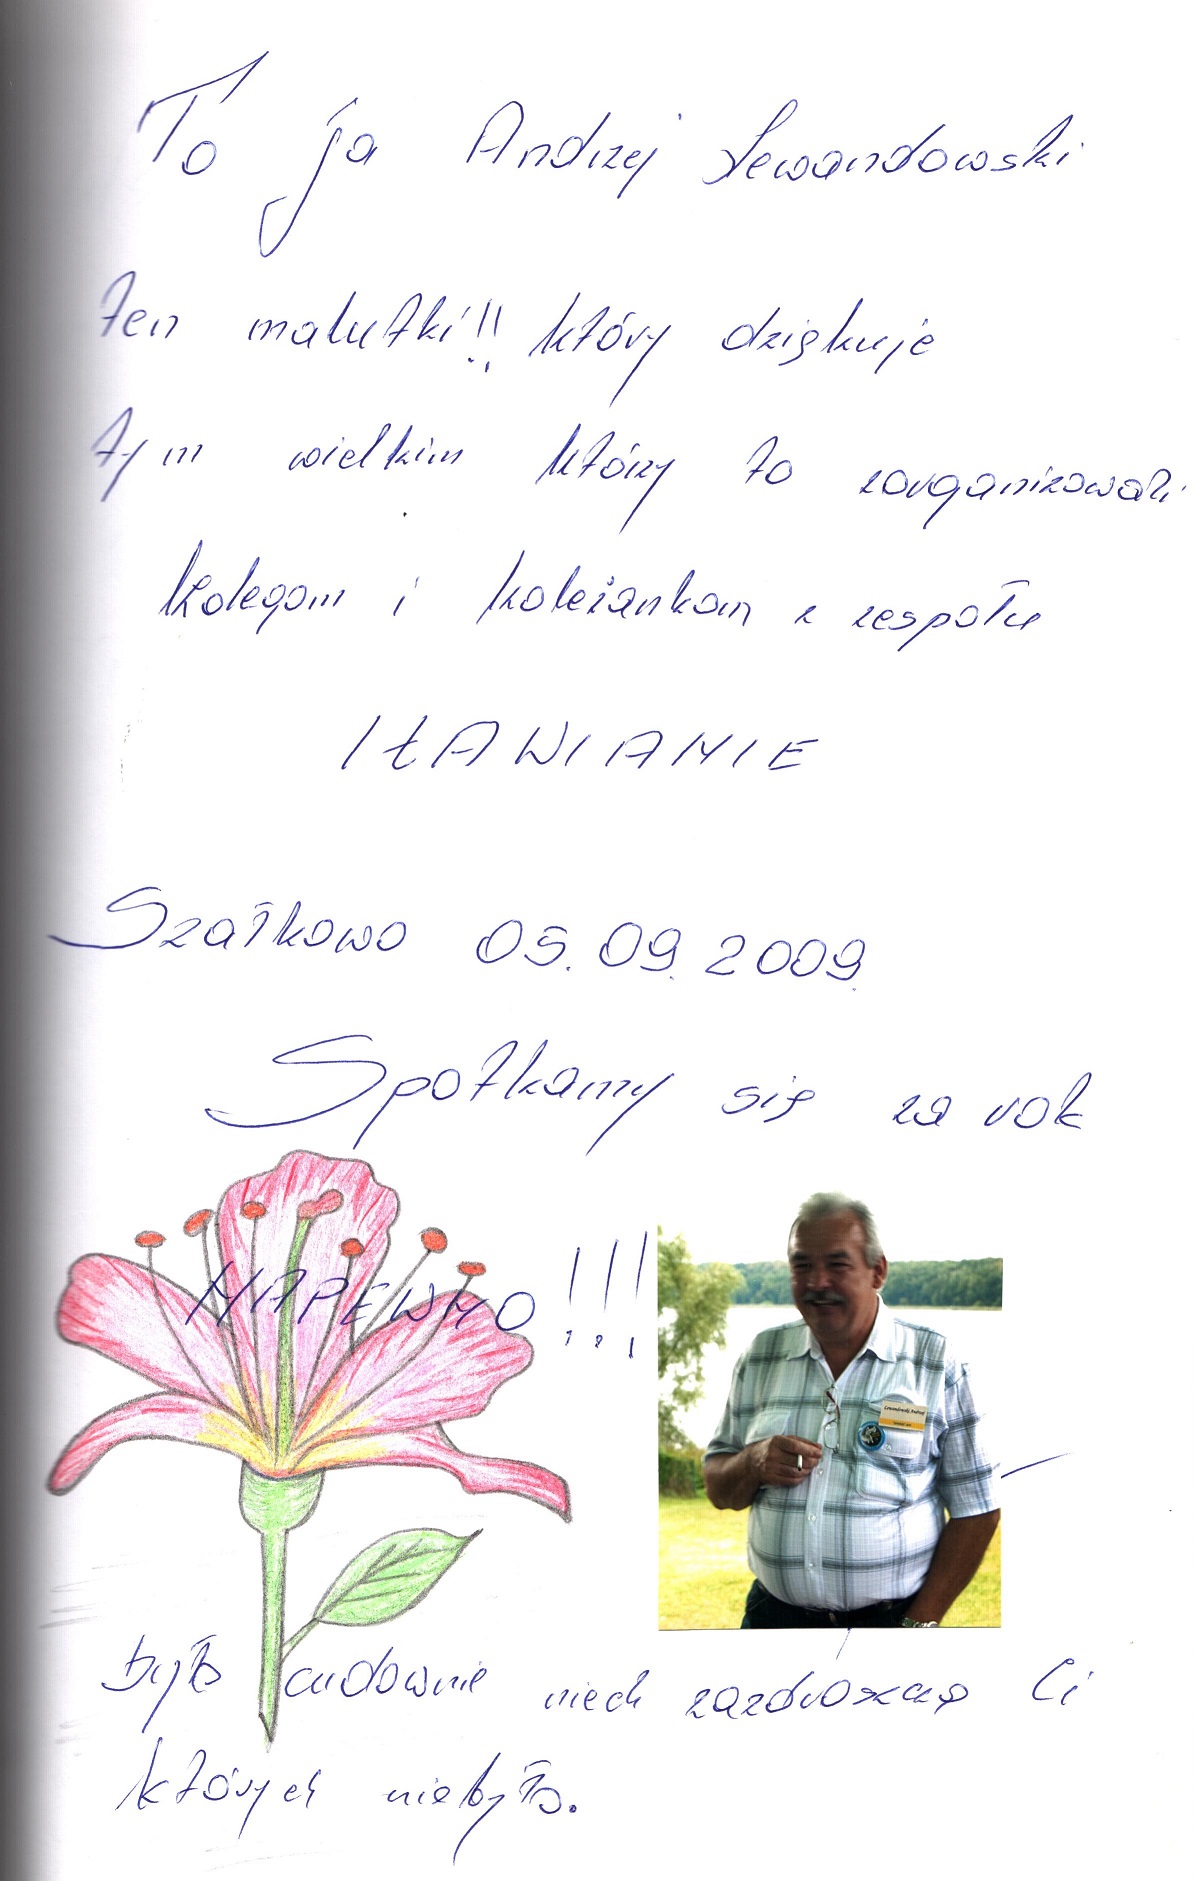 To ja Andrzej Lewandowski
ten malutki!! który dziękuje
tym wielkim którzy to zorganizowali
Kolegom i koleżankom z zespołu
IŁAWIANIE
Szałkowo 05.09.2009.
Spotkamy się za rok
NAPEWNO!!!
Lewandowski Andrzej
było cudownie niech zazdroszczą Ci
których niebyło.